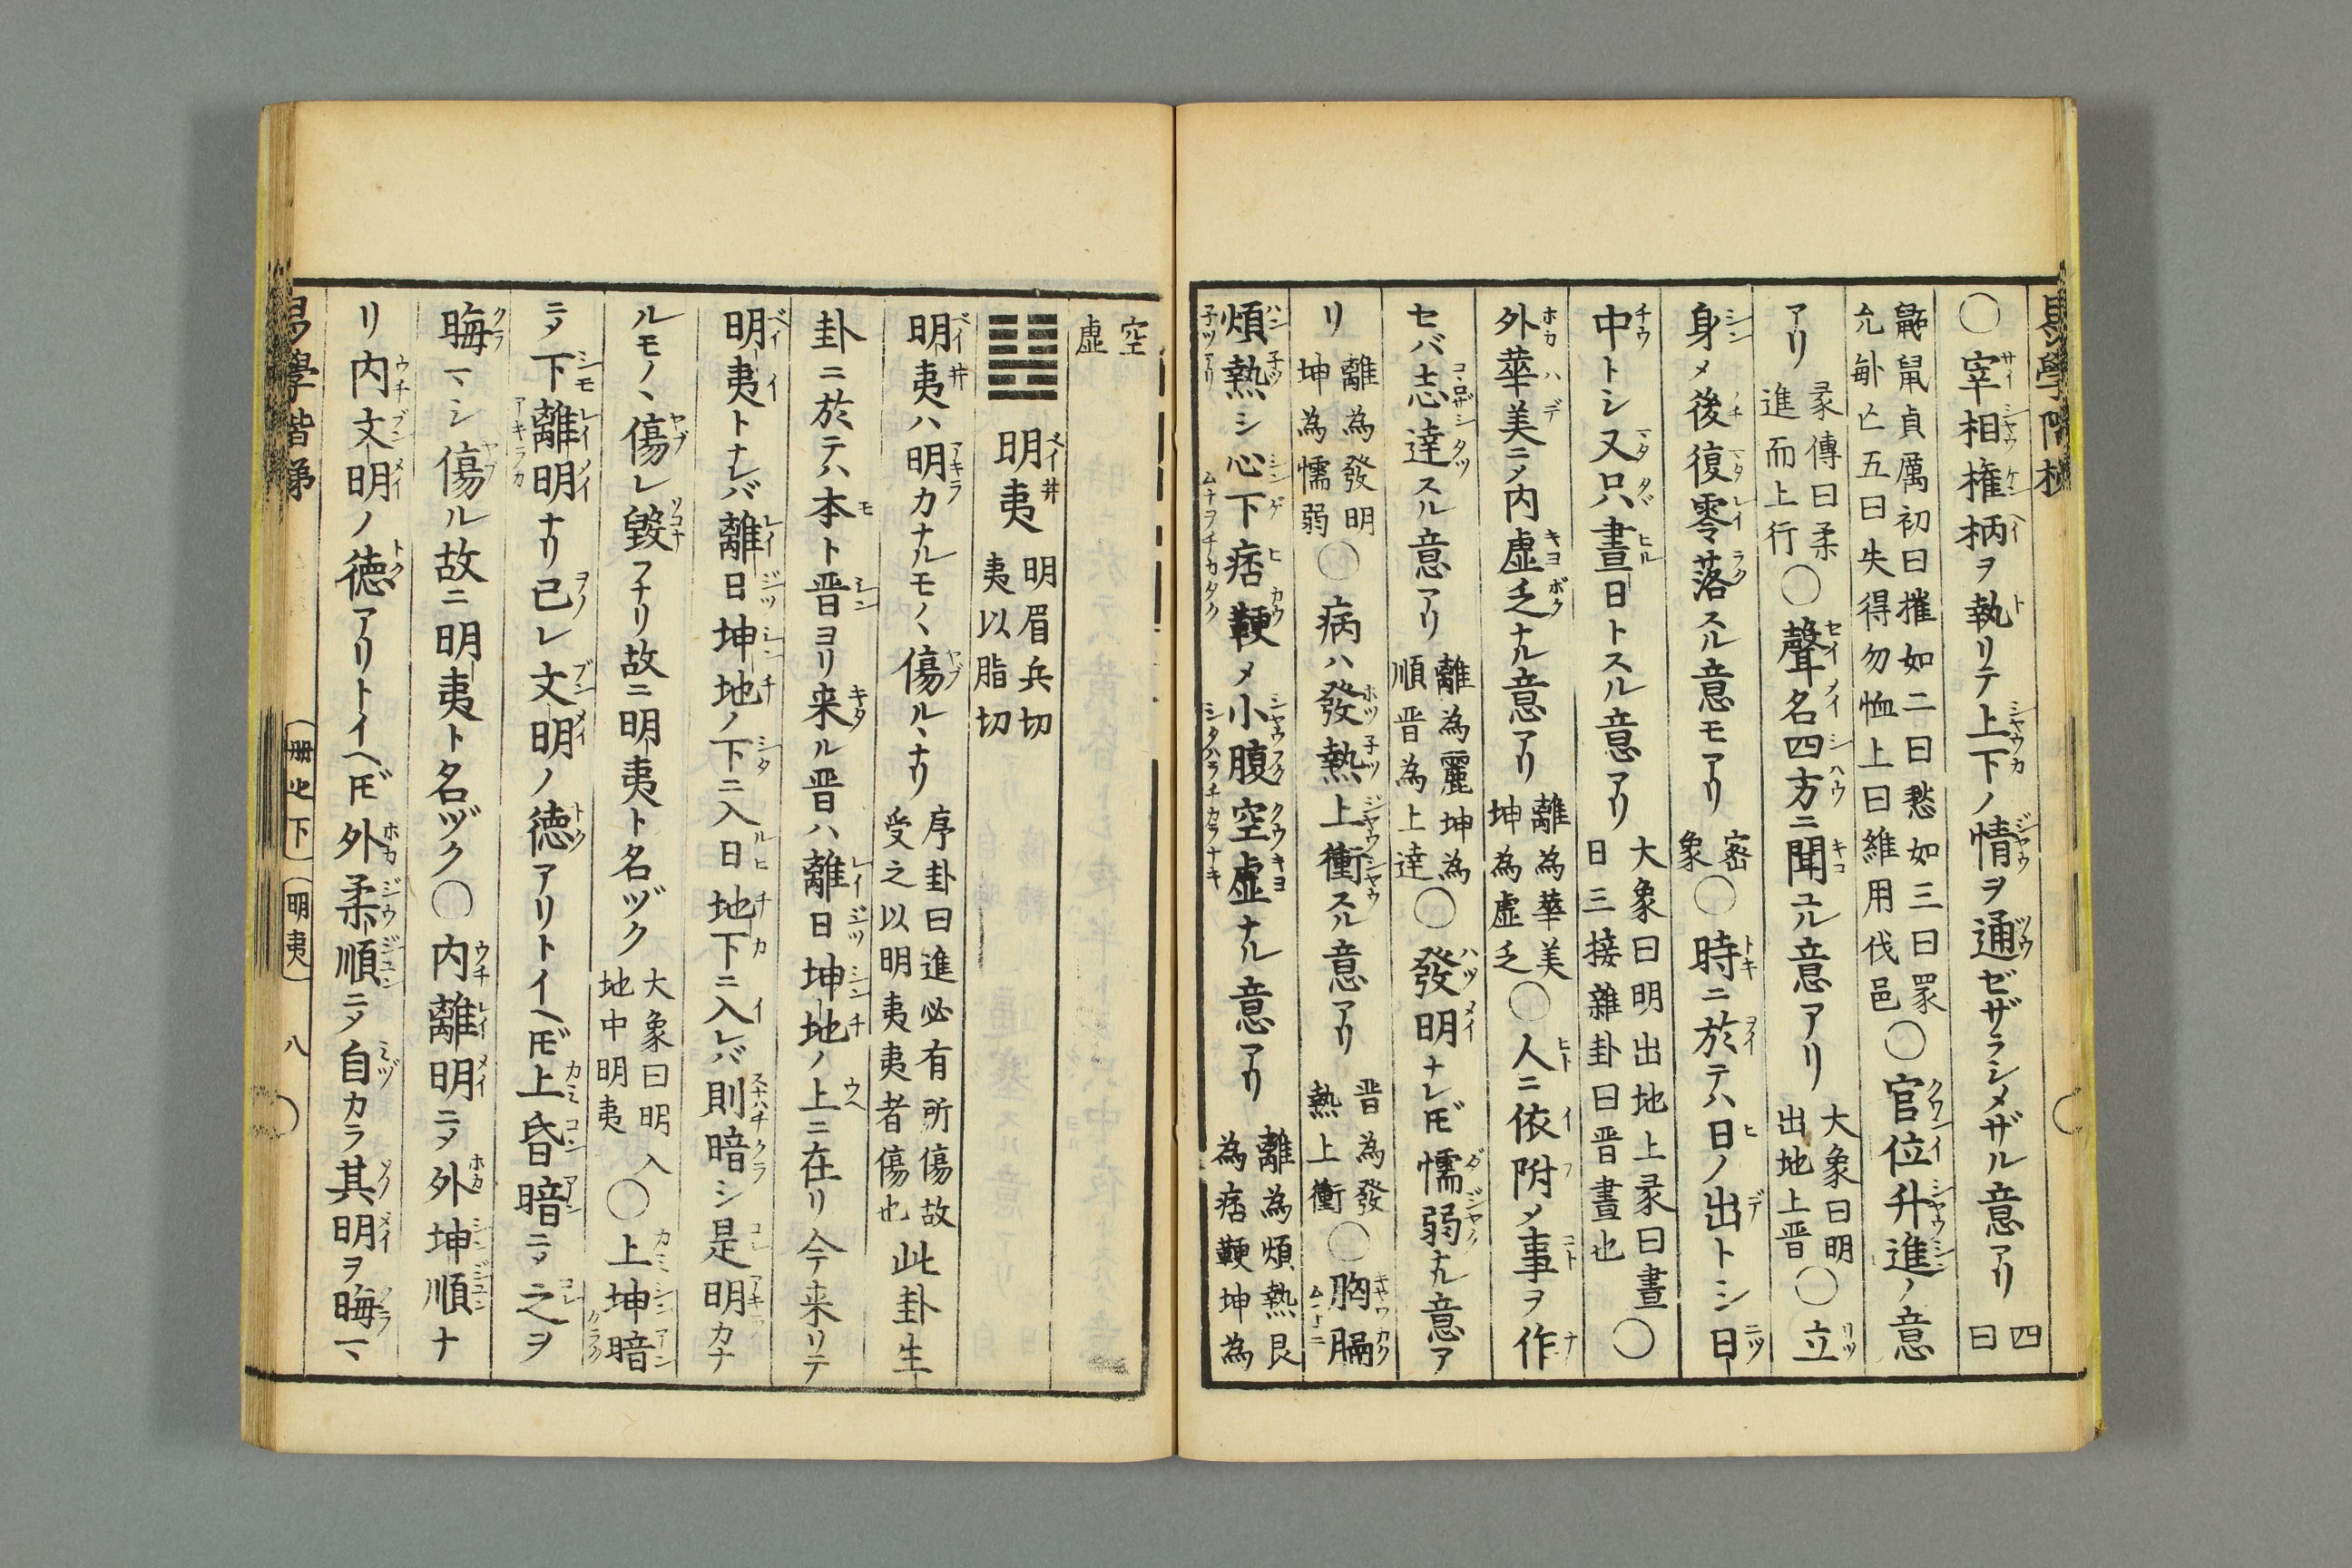 ○宰相権柄ヲ執リテ上下ノ情ヲ通ゼザラシメザル意アリ四曰
鼫鼠貞厲初曰摧如二曰愁如三曰衆允悔亡五曰失得勿恤上曰維用伐邑○官位升進ノ意
アリ彖傳曰柔進而上行○聲名四方ニ聞ユル意アリ大象曰明出地上晋○立
身〆後復零落スル意モアリ密象○時ニ於テハ日ノ出トシ日
中トシ又只晝日トスル意アリ大象曰明出地上彖曰晝日三接雜卦曰晋晝也○
外華美ニ〆内虚乏ナル意アリ離為華美坤為虚乏○人ニ依附〆事ヲ作
セバ志達スル意アリ離為麗坤為順晋為上達○發明ナレ𪜈懦弱ナル意ア
リ離為發明坤為懦弱○病ハ發熱上衝スル意アリ晋為發熱上衝○胸膈
煩熱シ心下痞鞕〆小腹空虚ナル意アリ離為煩熱艮為痞鞕坤為
空虚
明夷明眉兵切夷以脂切
明夷ハ明カナルモノヽ傷ルヽナリ序卦曰進必有所傷故受之以明夷夷者傷也此卦生
卦ニ於テハ本ト晋ヨリ来ル晋ハ離日坤地ノ上ニ在リ今来リテ
明夷トナレバ離日坤地ノ下ニ入日地下ニ入レバ則暗シ是明カナ
ルモノヽ傷レ毀フナリ故ニ明夷ト名ヅク大象曰明入地中明夷○上坤暗
ニ〆下離明ナリ己レ文明ノ徳アリトイヘ𪜈上昏暗ニ〆之ヲ
晦マシ傷ル故ニ明夷ト名ヅク○内離明ニ〆外坤順ナ
リ内文明ノ徳アリトイヘ𪜈外柔順ニ〆自カラ其明ヲ晦マ
易學階梯
冊之下
明夷
八